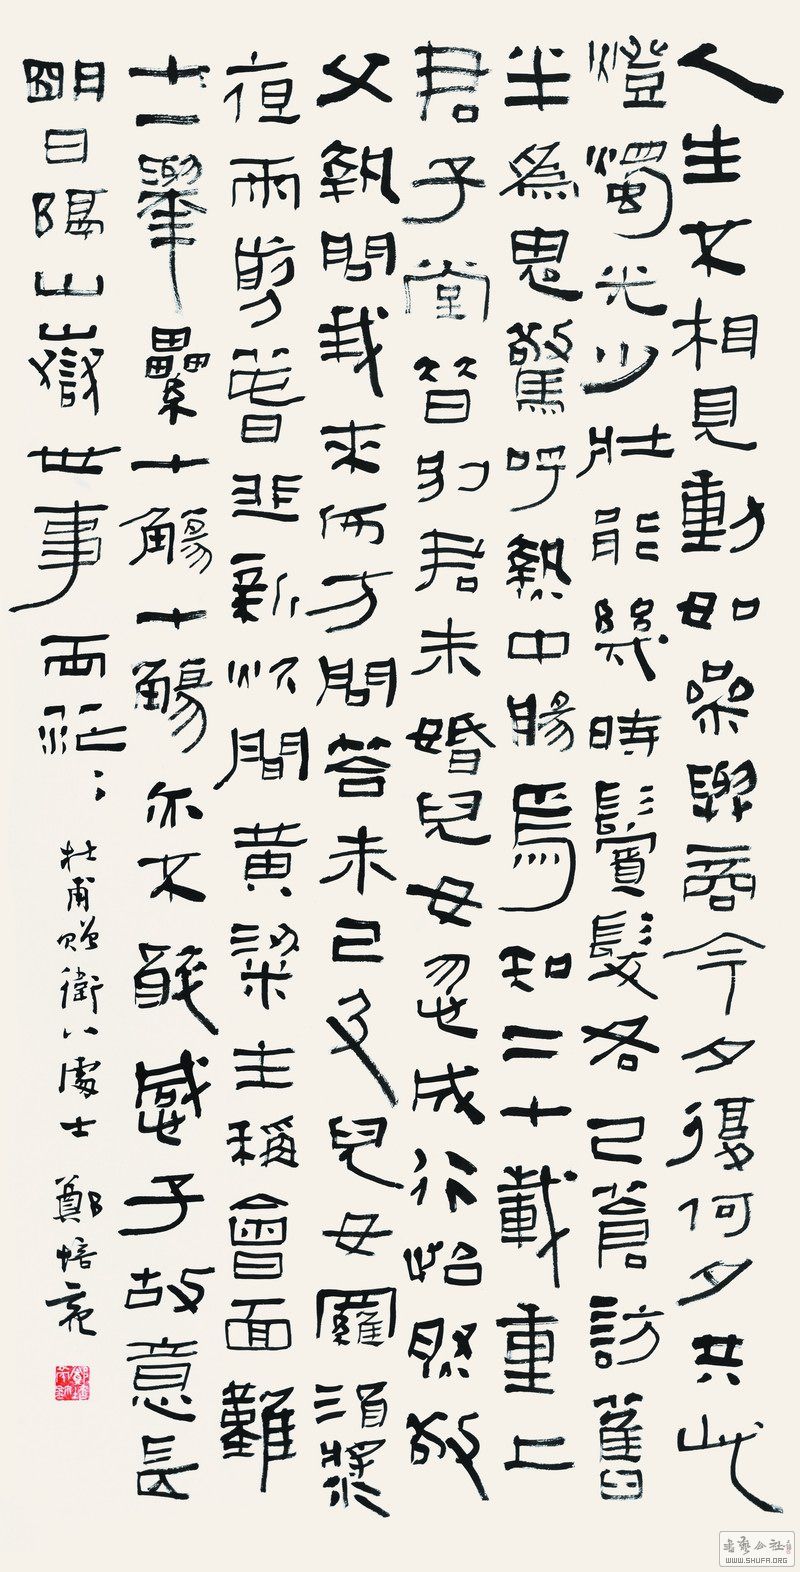 人生不相見動如參與商今夕復何夕共此
燈燭光少壯能幾時鬢髮各已蒼訪舊
半爲鬼驚呼熱中腸焉知二十載重上
君子堂昔別君未婚兒女忽成行怡然敬
父執問我來何方問答未已及兒女羅酒漿
夜雨剪春韭新炊間黃粱主稱會面難
十一舉纍十觴十觴亦不醉感子故意長
明日隔山嶽世事兩茫〻
杜甫贈衛八處士 鄭培亮
書藝公社
WWW.SHUFA.ORG